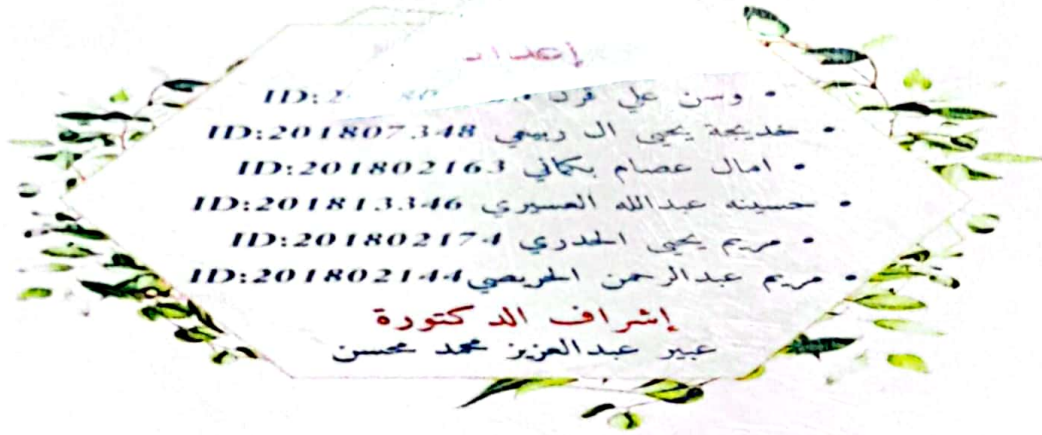 إعداد
• وسن علي ID:2
• خديجة يحيى ال ربيعي ID:201807348
• امال عصام بكاني ID:201802163
• حسينه عبدالله العسيري ID:201813346
• مريم يحيى الخدري ID:201802174
• مريم عبدالرحمن الحريصي ID:201802144
إشراف الدكتورة
عبير عبدالعزيز محمد محسن